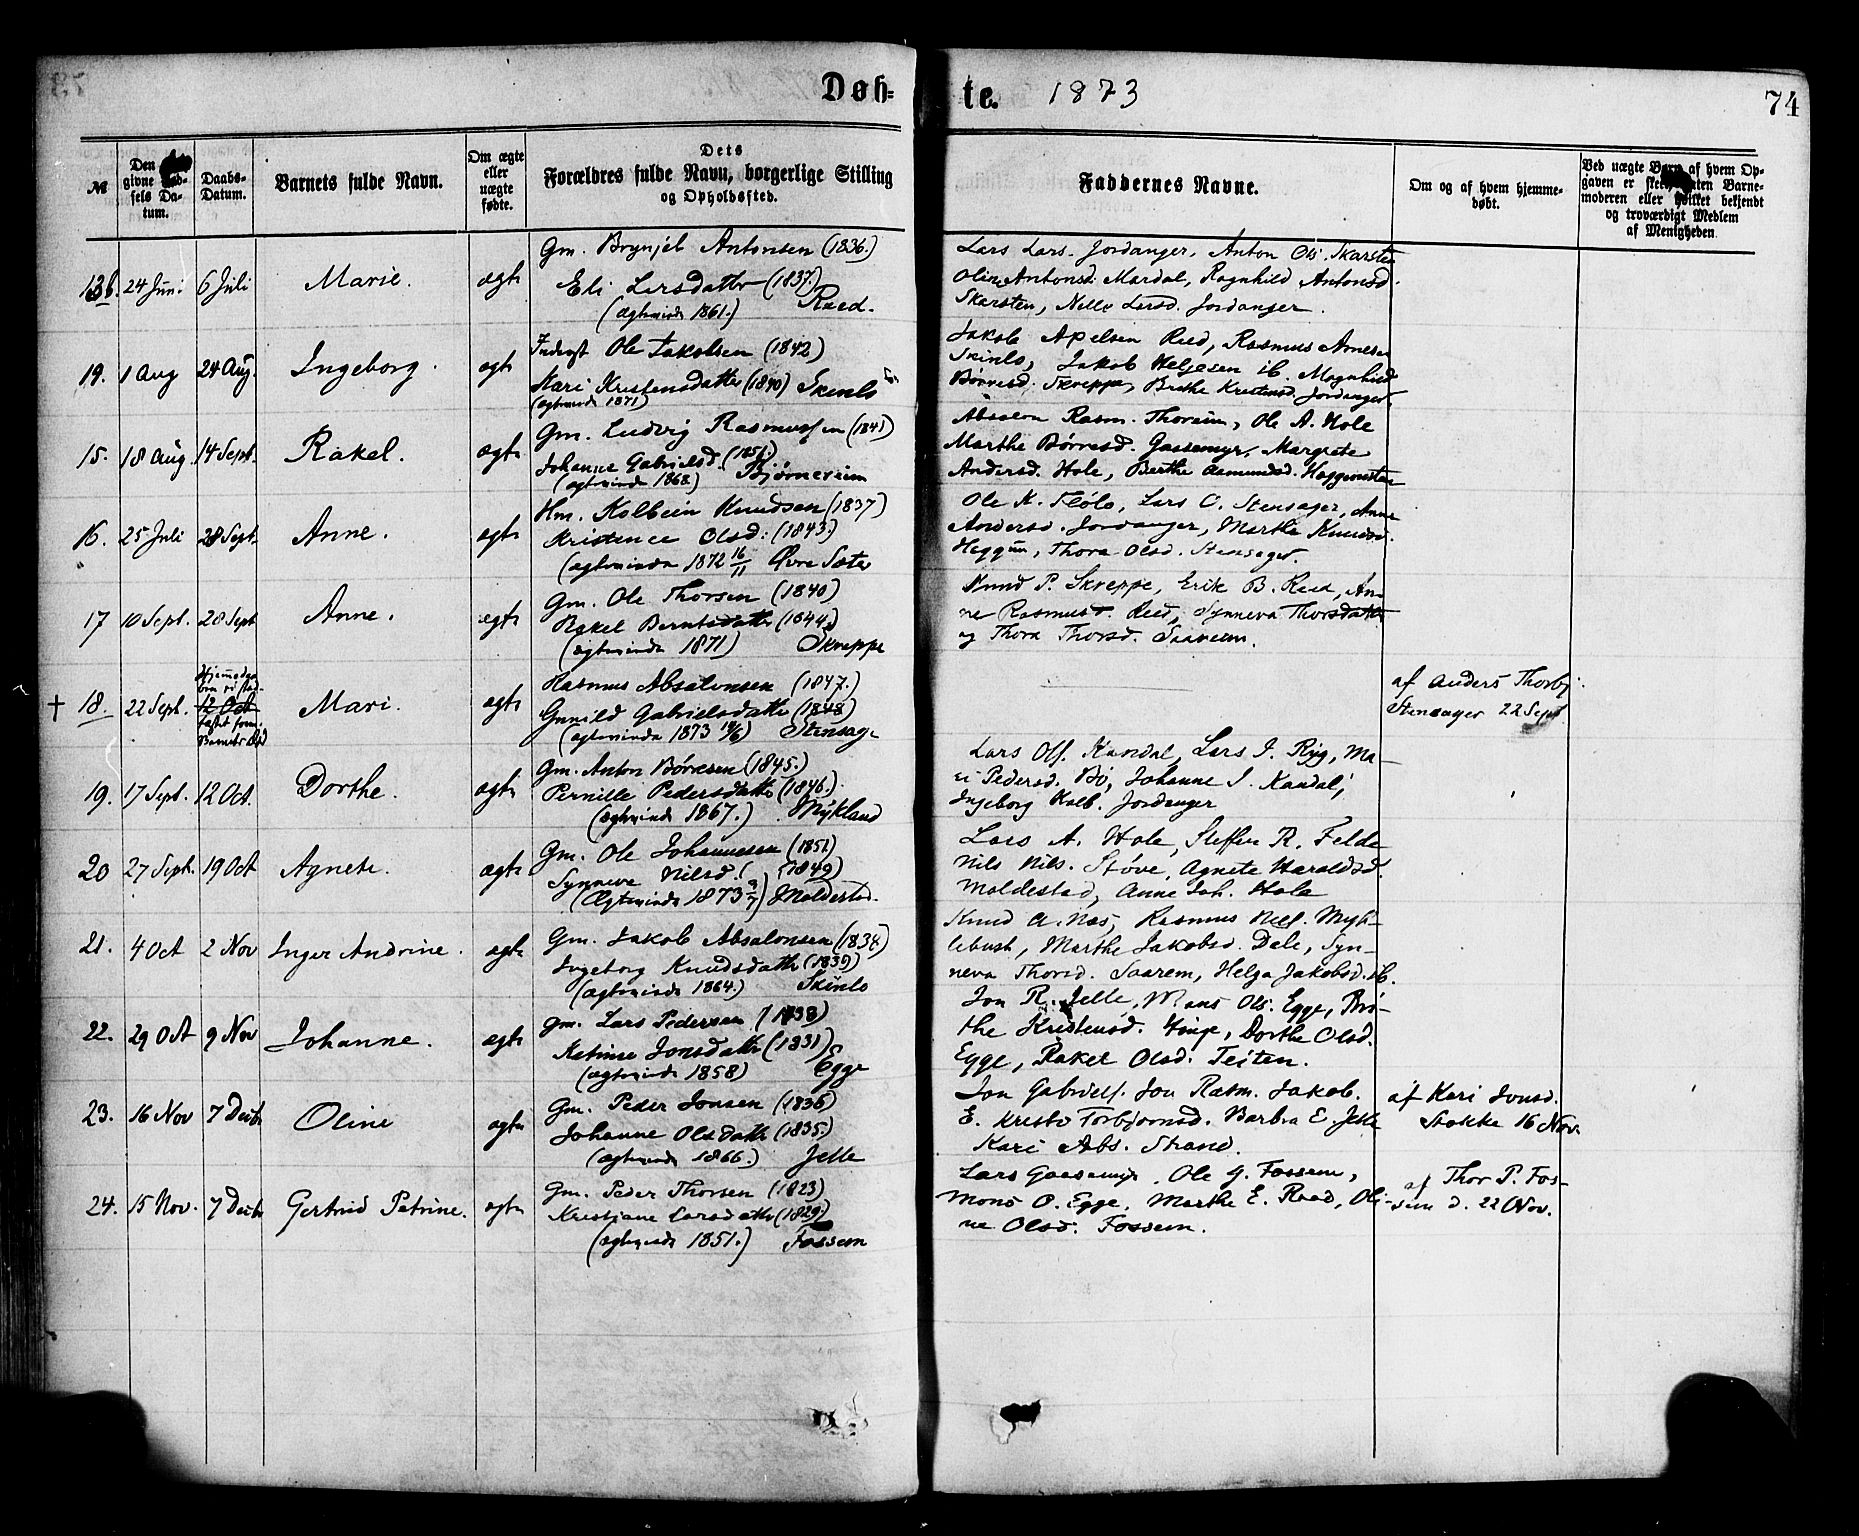 Døb-
te. 1873
74
№
Den
givne Fød-
sels Da-
tum.
Daabs-
Datum.
Barnets fulde Navn.
Om ægte
eller
uægte
fødte.
Dets
Forældres fulde Navn, borgerlige Stilling
og Opholdssted.
Faddernes Navne.
Om og af hvem hjemme-
døbt.
Ved uægte Barn af hvem Op-
gaven er skeet, uten Barne-
moderen eller hvilket bekjendt
og troværdigt Medlem
af Menigheden.
24 Juni 6 Juli Marie. ægte
Gm. Brynjel Antonsen (1836.)
Eli Larsdatter (1837.)
(ægteviede 1861.) Raed.
Lars Lars. Jordanger, Anton Ols. Skarsten
Oline Antonsd. Mardal, Ragnhild Antonsd.
Skarsten, Nelle Larsd. Jordanger.
19. 1 Aug 24 Aug. Ingeborg. ægte
Ole Jakobsen (1842)
Kari Kristensdatter (1840) Skinlo
(ægteviede 1871)
Jakob Apelsen Reed, Rasmus Arnesen
Skinlo, Jakob Helgesen ib. Magnhild
Børresd. Skreppe, Brithe Kristensd. Jordanger.
15. 18 Aug. 14 Sept. Rakel. ægte
Gm. Ludvig Rasmussen (1841)
Johanne Gabrielsd. (1851.)
(ægteviede 1868.) Bjørnereim
Absalon Rasm. Thoreim, Ole A. Hole
Marthe Børresd. Gaasemyr, Margrete
Andersd. Hole, Berthe Asmundsd.
16. 25 Juli 28 Sept. Anne. ægte
Hm. Kolbein Knudsen (1837)
Kristence Olsd: (1843.)
(ægteviede 1872 16/11 Øvre Sæter
Ole K. FløLo, Lars O. Stensager, Anne
Andersd. Jordanger, Marthe Knudsd.
Heggum, Thora Olsd. Stensager.
17 10 Sept. 28 Sept Anne. ægte
Gm. Ole Thorsen (1840)
Rakel Berntsdatter (1844.)
(ægteviede 1871) Skreppe
Knud P. Skreppe, Erik B. Reed, An-
ne Rasmusd. Reed, Synneva Thorsdatter
og Thora Thorsd. Saareim.
† 18. 22 Sept. 12 Oct Mari. ægte
Rasmus Absalonsen (1847.)
Gunild Gabrielsdatter (1848)
(ægteviede 1873 Stensager
af Anders Thorbj.
Stensager 22 Sept
19. 17 Sept. 12 Oct. Dorthe. ægte
Gm. Anton Børresen (1845.)
Pernille Pedersdatter (1846.)
(ægteviede 1867.) Mykland
Lars Ols. Kandal, Lars J. Ryg, Ma-
ri Pedersd. Bø, Johanne J. Kandal,
Ingeborg Kolb. Jordanger
20 27 Sept. 19 Oct Agnete. ægte
Gm. Ole Johannesen (1851)
Synneve Nilsd. (1849)
(Ægteviede 1873 9/7) Moldestad.
Lars A. Hole, Steffen R. Felde
Nils Nils. Støve, Agnete Haraldsd.
Moldestad, Anne Joh. Hole
21. 4 Oct 2 Nov Inger Andrine. ægte
Gm. Jakob Absalonsen (1834)
Ingeborg Knudsdatter (1839)
(ægteviede 1864.) Skinlo
Knud A. Nos, Rasmus Nils. Myk-
lebust, Marthe Jakobsd. Dale, Syn-
neva Thorsd. Saarem, Helga Jakobsd. ib.
22. 29 Oct 9 Nov Johanne. ægte
Gm. Lars Pedersen (1838)
Katrine Jonsdatter (1831)
(ægteviede 1858) Egge
Jon R. Jelle, Mons Ols. Egge, Bri-
the Kristensd. Hinge, Dorthe Olsd.
Egge, Rakel Olsd. Teiten.
23. 16 Nov 7 Decbr Oline ægte
Gm. Peder Jonsen (1836)
Johanne Olsdatter (1835.)
(ægteviede 1866.) Jelle
Jon Gabriels. Jon Rasm. Jakob.
E. Kristo Torbjørnsd. Barbra E. Jelle
Kari Abs. Strand.
af Kari Jonsd.
Stokke 16 Nov.
24. 15 Nov. 7 Decbr Gertrud Petrine. ægte
Gm. Peder Thorsen (1823)
Kristiane Larsdatter (1829)
(ægteviede 1851.) Fossem
Lars Gaasemyr, Ole G. Fossem,
Mons O. Egge, Marthe E. Raad, Oli-
ne Olsd. Fossem.
af Thor P. Fos-
sem d. 22 Nov.